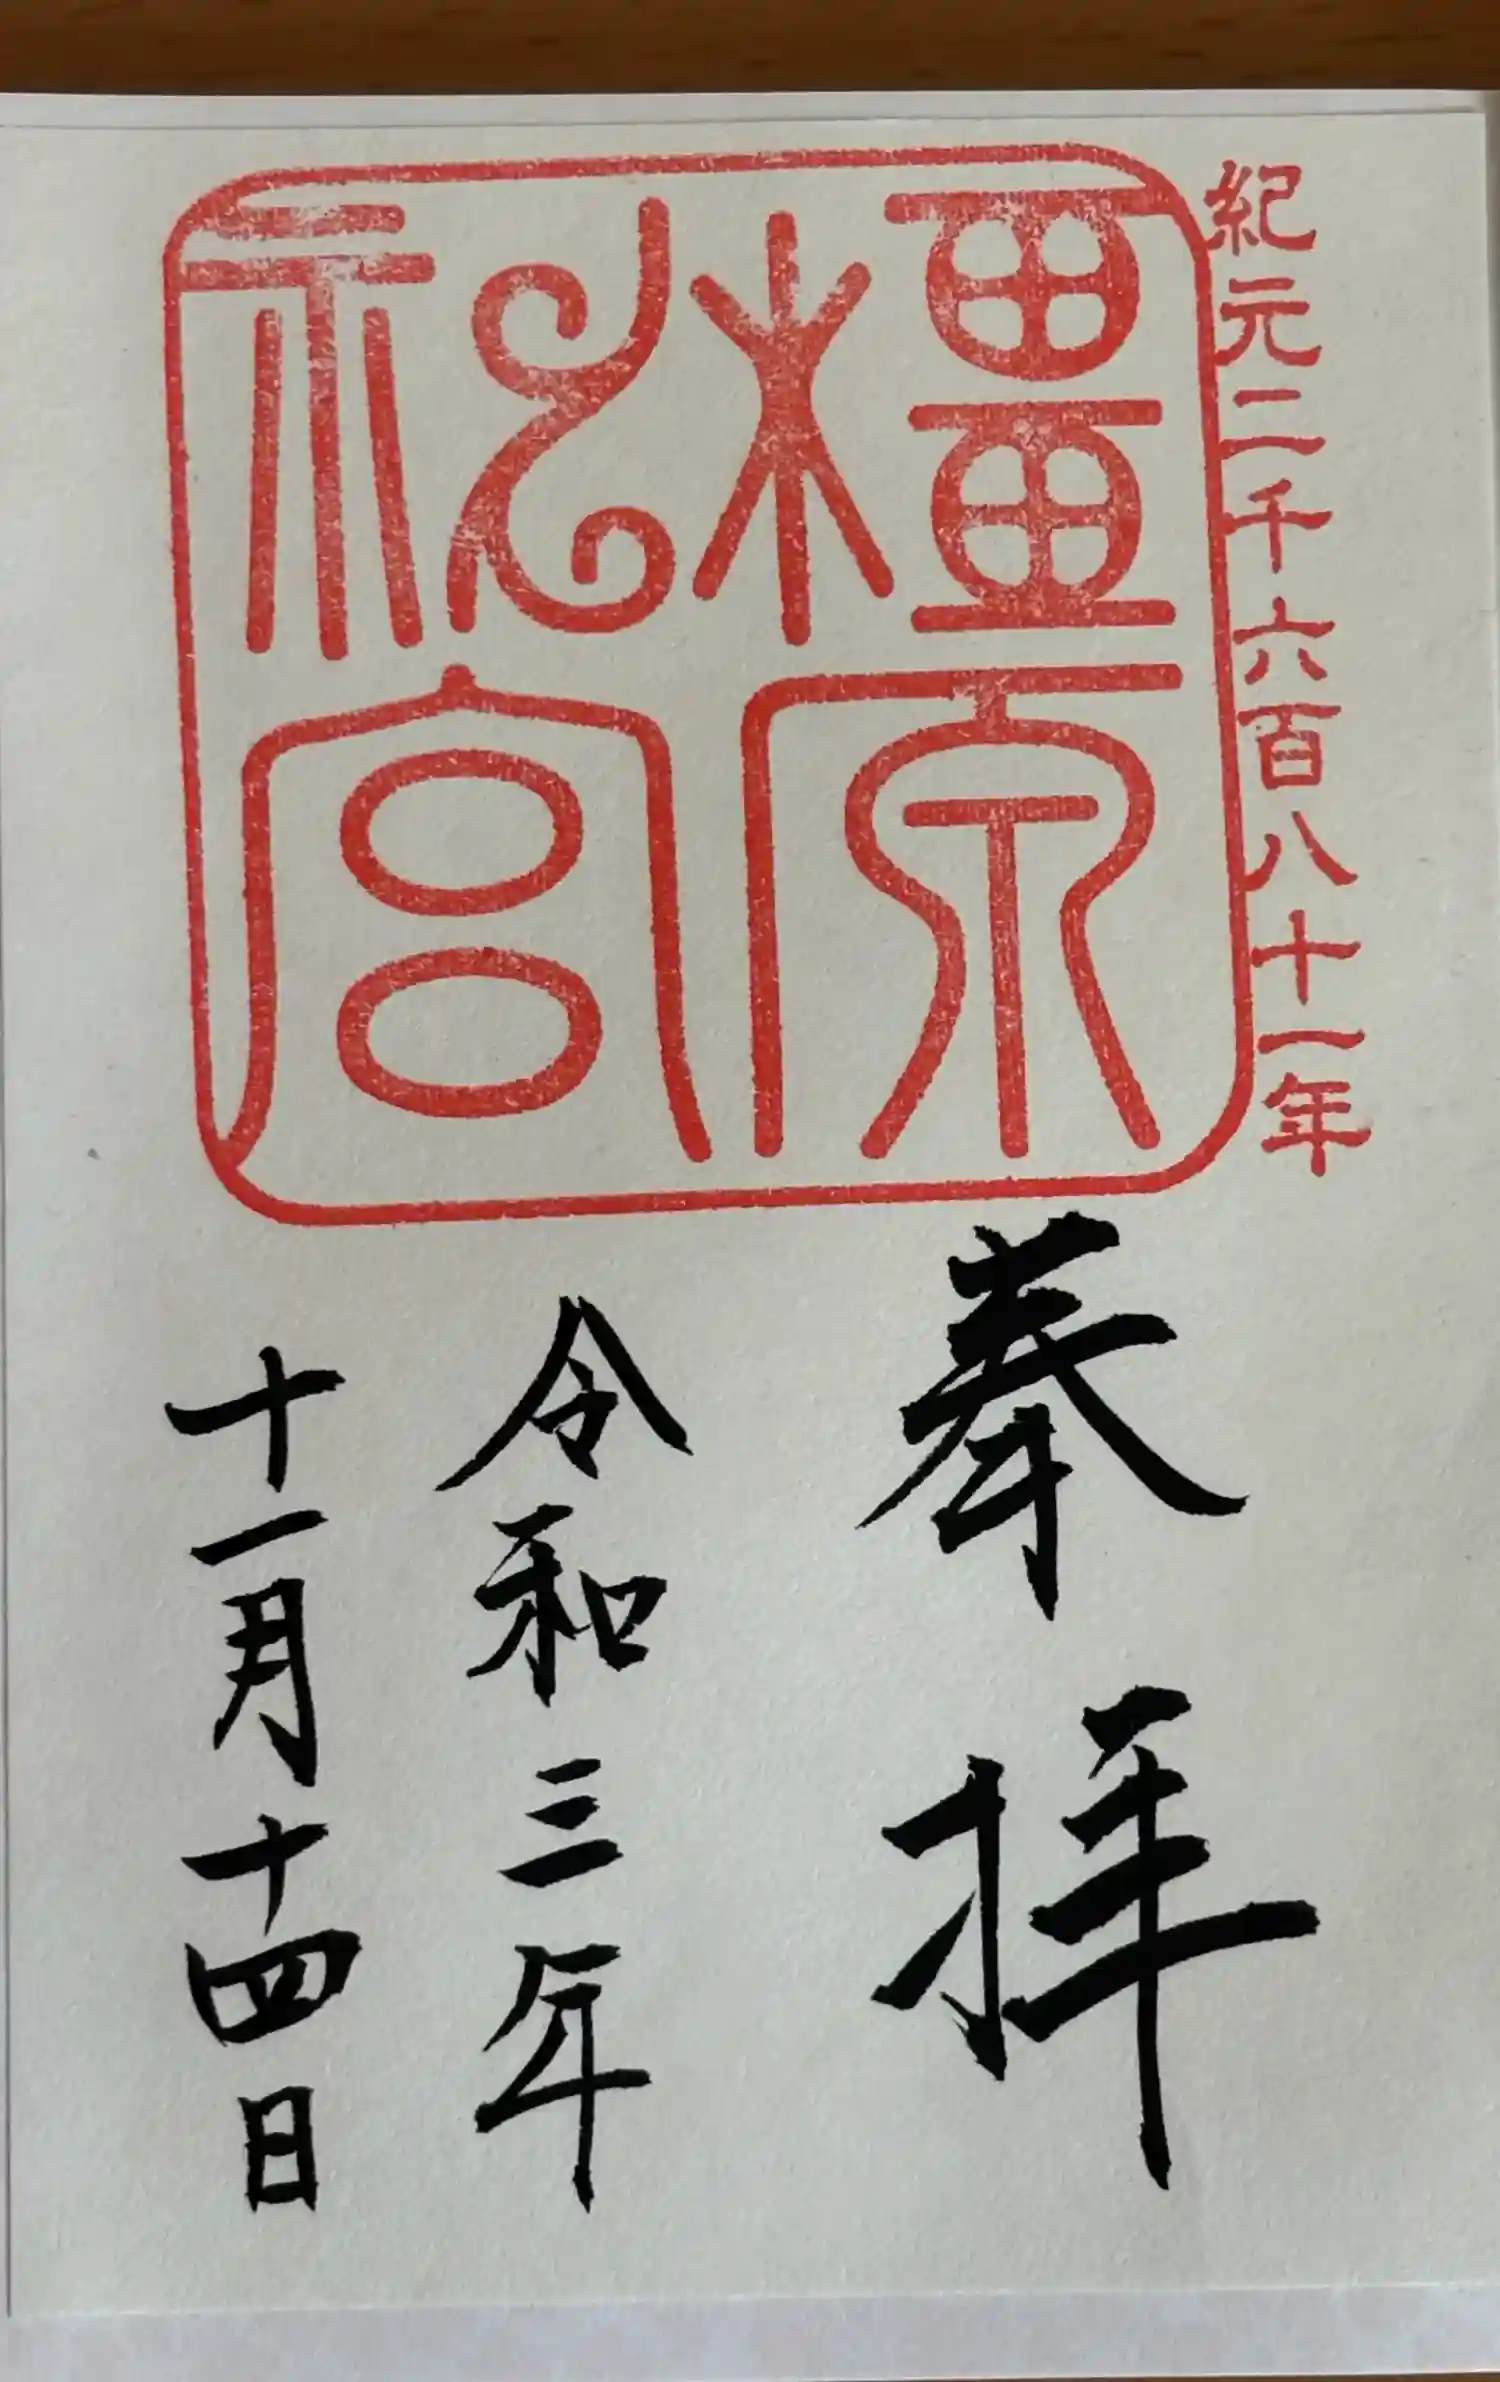 紀元二千六百八十一年
橿原
神宮
奉拝
令和三年
十一月十四日